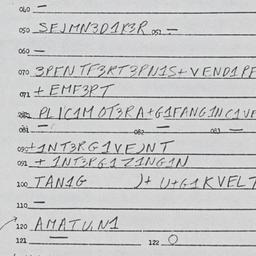 040 —
050 SEJMN3D1R3R 051 —
060 —
070 3PFNTF3RT3PN1S+VEND1PF
071 + EMF3RT
080 PLIC1M OT3RA+G1FANG1NC1VE
081 — 082 — 083 —
090 +1NT3RG1VE)NT
091 + 1NT3PG1Z1NG1N
100 TAN1G )+ U+G1KVELT
110 —
120 AMATUN1
121 — 122 O